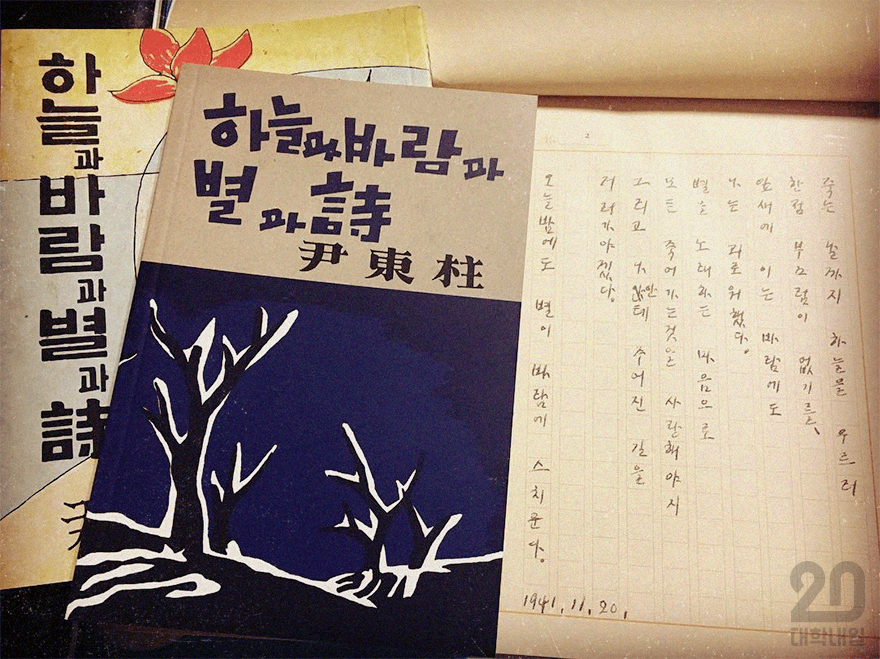 하늘과바람과별과詩
하늘과바람과
별과詩
尹東柱
2
죽는 날까지 하늘을 우르러
한점 부끄럼이 없기를、
잎새에 이는 바람에도
나는 괴로워했다。
별을 노래하는 마음으로
모든 죽어가는것을 사랑해야지
그리고 나안테 주어진 길을
거러가야겠다。
오늘밤에도 별이 바람에 스치운다。
1941.11.20.
20
대학내일